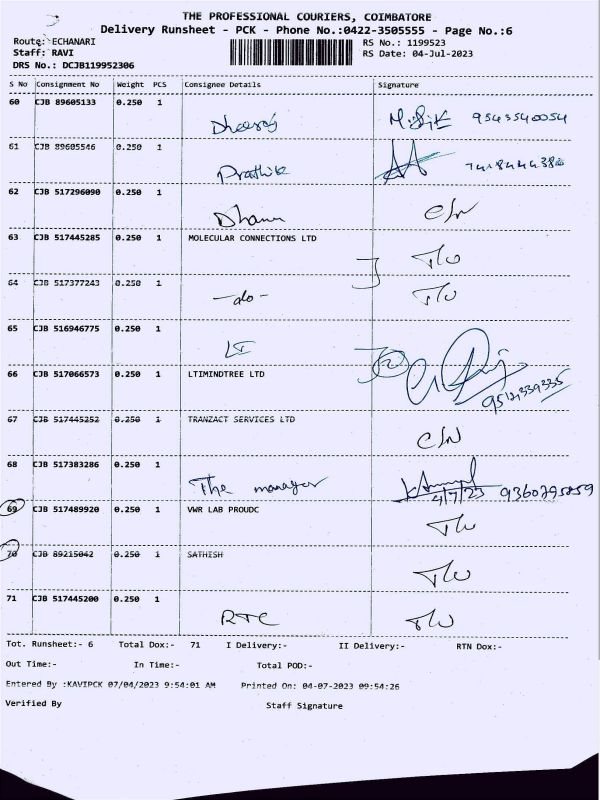 THE PROFESSIONAL COURIERS, COIMBATORE
Delivery Runsheet - PCK - Phone No.:0422-3505555 - Page No.:6
Route: ECHANARI RS No.: 1199523
Staff: RAVI RS Date: 04-Jul-2023
DRS No.: DCJB119952306
S No Consignment No Weight PCS Consignee Details Signature
60 CJB 89605133 0.250 1
Dheeraj 9543540054
61 CJB 89605546 0.250 1
Prathik
62 CJB 517296090 0.250 1
C/N
63 CJB 517445285 0.250 1 MOLECULAR CONNECTIONS LTD
64 CJB 517377243 0.250 1
-do-
65 CJB 516946775 0.250 1
66 CJB 517066573 0.250 1 LTIMINDTREE LTD
67 CJB 517445252 0.250 1 TRANZACT SERVICES LTD
C/N
68 CJB 517383286 0.250 1
The manager 4/7/23
69 CJB 517489920 0.250 1 VWR LAB PROUDC
70 CJB 89215042 0.250 1 SATHISH
71 CJB 517445200 0.250 1
RTC
Tot. Runsheet:- 6 Total Dox:- 71 I Delivery:- II Delivery:- RTN Dox:-
Out Time:- In Time:- Total POD:-
Entered By :KAVIPCK 07/04/2023 9:54:01 AM Printed On: 04-07-2023 09:54:26
Verified By Staff Signature